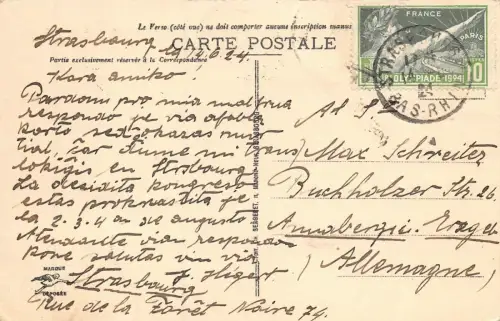 Le Verso (côté vue) ne doit comporter aucune inscription manus
CARTE POSTALE
Partie exclusivement réservée à la Correspondance
Strasbourg 14.6.24.
Kara amiko!
Pardonu pro mia malfrua
respondo je via
karto sed okazas nur
tial, ĉar dume mi trans
lokiĝis en Strasbourg
La decidita kongreso
estas prokrastita je
la 2.3.4 an de augusto
Atendante vian respondon
kore salutas vin via
J. Hilgert
Strasbourg
Rue de la Forêt Noire 74.
MARQUE
DÉPOSÉE
FRANCE
PARIS
8e OLYMPIADE-1924
10
BAS-RHIN
Ad S-
Max Schreiter
Buchholzer Str. 26
Annaberg i. Erzgeb
(Allemagne)